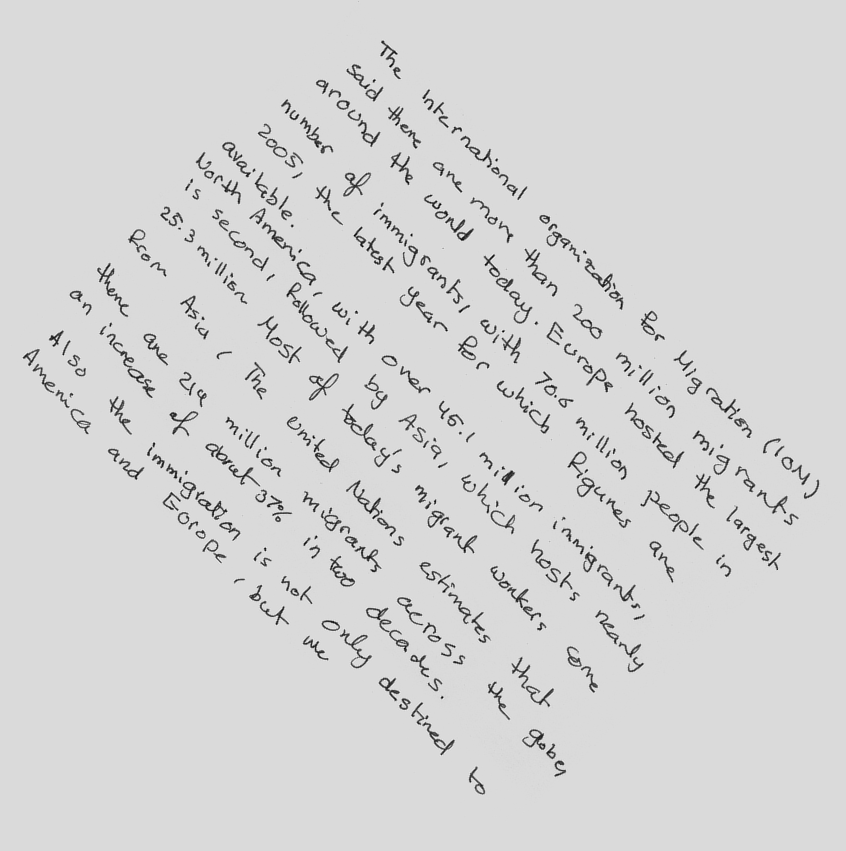 The International organization for Migration (IOM)
said there are more than 200 million migrants
around the world today. Europe hosted the largest
number of immigrants, with 70.6 million people in
2005, the latest year for which figures are
available.
North America, with over 45.1 million immigrants,
is second, followed by Asia, which hosts nearly
25.3 million Most of today's migrant workers come
from Asia, The United Nations estimates that
there are 214 million migrants across the globe,
an increase of about 37% in two decades.
Also the immigration is not only destined to
America and Europe, but we